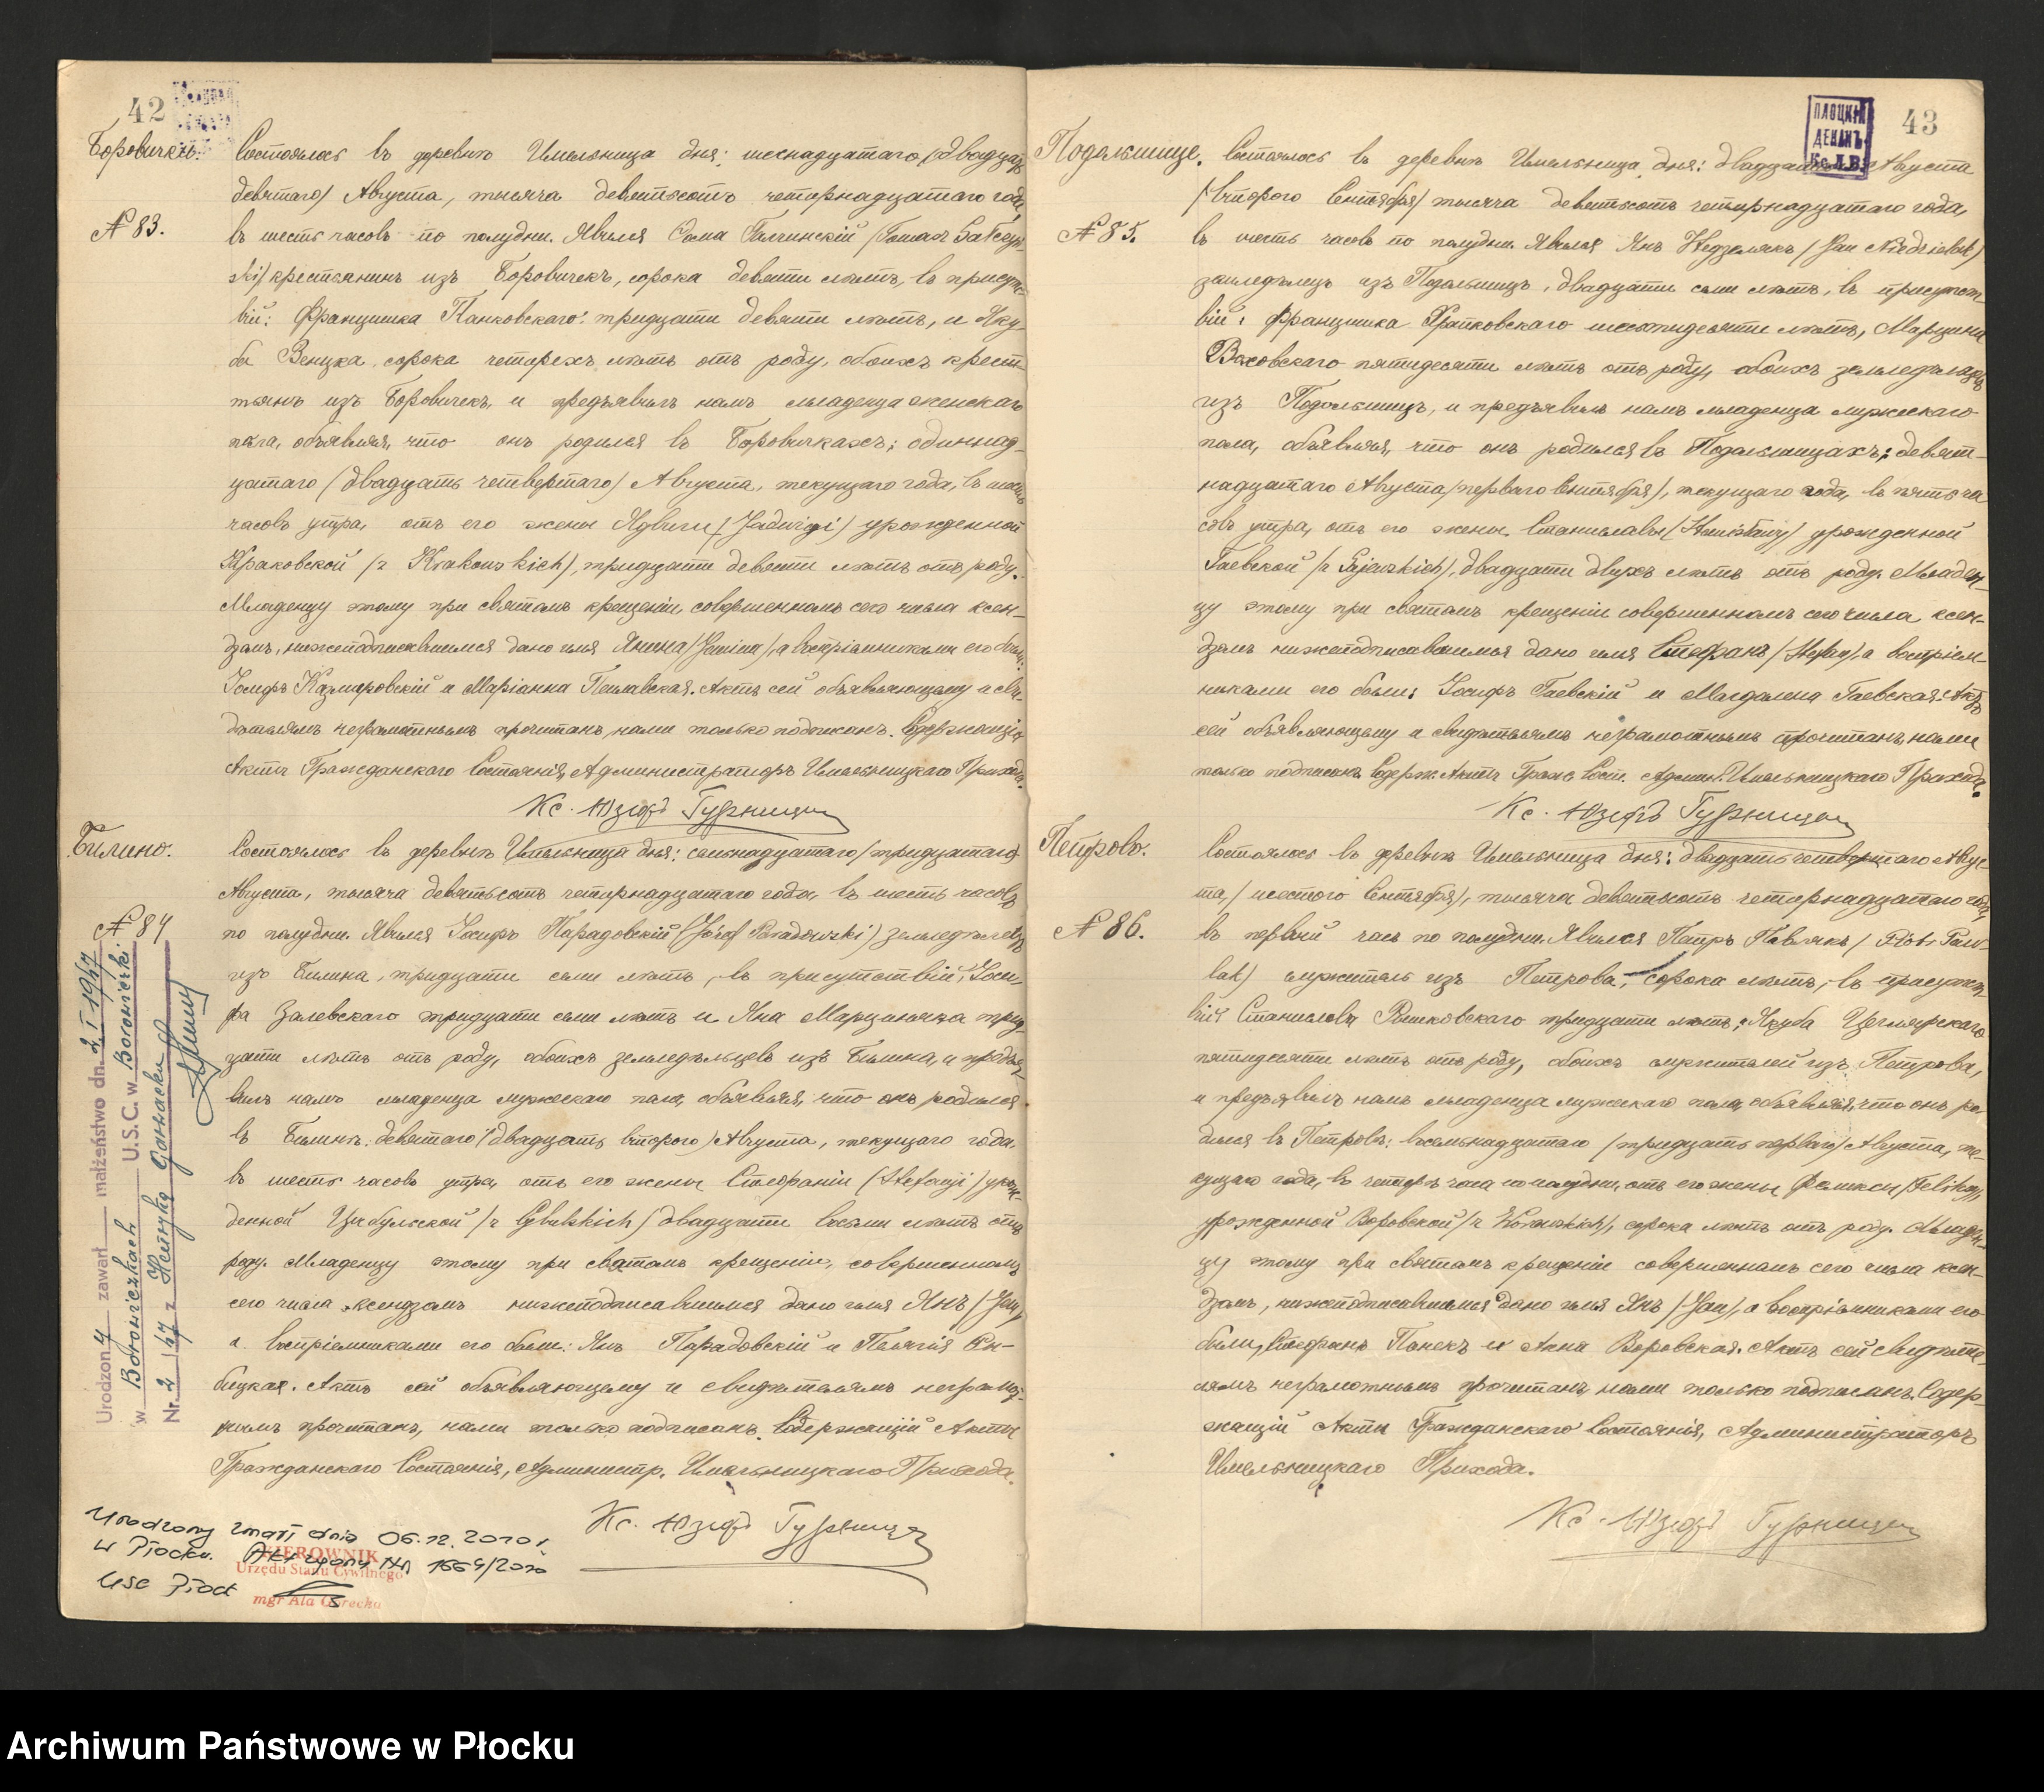 42
Боровички.
Состоялось въ деревнѣ Имельница дня: шеснадцатаго /двадцать
девятаго/ Августа, тысяча девятьсотъ четырнадцатаго года,
№ 83.
въ шесть часовъ по полудни. Явился Ѳома /Tomasz
ski/ крестьянинъ изъ Боровичекъ, сорока девяти лѣтъ, въ присутст-
вій: Францишка Панковскаго тридцати девяти лѣтъ, и Яку-
ба сорока четырехъ лѣтъ отъ роду, обоихъ крест-
тьянъ изъ Боровичекъ, и предъявилъ намъ младенца женскаго
пола, объявляя, что онъ родился въ Боровичкахъ; одиннад-
цатаго /двадцать четвертаго/ Августа, текущаго года, въ шесть
часовъ утра, отъ его жены Ядвиги /Jadwigi/ урожденной
Краковской /z Krakowskich/, тридцати девяти лѣтъ отъ роду.
Младенцу этому при святомъ крещеніи, совершенномъ сего числа ксен-
дзомъ, нижеподписавшимся дано имя Янина /Janina/, а воспріемниками его были:
Іосифъ Казмеровскій и Маріанна Актъ сей объявляющему и сви-
дѣтелямъ неграмотнымъ прочитанъ, нами только подписанъ. Содержащій
Акты Гражданскаго Состоянія, Администраторъ Имельницкаго Прихода.
Кс. Юзефъ
Билино.
Состоялось въ деревнѣ Имельница дня: семьнадцатаго /тридцатаго/
Августа, тысяча девятьсотъ четырнадцатаго года, въ шесть часовъ
№ 84
по полудни. Явился Іосифъ Парадовскій /Józef Paradowski/ земледѣлецъ
изъ Билина, тридцати семи лѣтъ, въ присутствій: Іоси-
фа Залевскаго тридцати семи лѣтъ и Яна Марциняка трид-
цати лѣтъ отъ роду, обоихъ земледѣльцевъ изъ Билина, и предъя-
вилъ намъ младенца мужескаго пола, объявляя, что онъ родился
въ Билинѣ: девятаго /двадцать втораго/ Августа, текущаго года,
въ шесть часовъ утра, отъ его жены Стефаніи /Stefanji/ урож-
денной Цыбульской /z Cybulskich/ двадцати восьми лѣтъ отъ
роду. Младенцу этому при святомъ крещеніи, совершенномъ
сего числа ксендзомъ нижеподписавшимся дано имя Янъ /Jan/,
а воспріемниками его были: Янъ Парадовскій и Пелагія
Актъ сей объявляющему и свидѣтелямъ неграмот-
нымъ прочитанъ, нами только подписанъ. Содержащій Акты
Гражданскаго Состоянія, Администр. Имельницкаго Прихода.
Кс. Юзефъ
Urodzony zawarł małżeństwo dn. 2 I 1947
w Borowiczkach U.S.C. w Borowiczki
Nr. 2/47 z Henryką
Urodzony zmarł dnia 06.12.2010 r.
w Płocku. Akt zgonu Nr 1664/2010
USC Płock
KIEROWNIK
Urzędu Stanu Cywilnego
mgr Ala
43
ПЛОЦКІЙ
ДЕКАНЪ
Подольшице.
Состоялось въ деревнѣ Имельница, дня: Августа
/втораго Сентября/ тысяча девятьсотъ четырнадцатаго года,
№ 85.
въ шесть часовъ по полудни. Явился Янъ
земледѣлецъ изъ Подольшицъ, двадцати семи лѣтъ, въ присутст-
вій: Францишка Франковскаго шестидесяти лѣтъ, Марцина
пятидесяти лѣтъ отъ роду, обоихъ земледѣльцевъ
изъ Подольшицъ, и предъявилъ намъ младенца мужескаго
пола, объявляя, что онъ родился въ Подольшицахъ; девят-
надцатаго Августа /перваго Сентября/, текущаго года, въ пять ча-
совъ утра, отъ его жены Станиславы /Stanisławy/ урожденной
Гаевской /z Gajewskich/, двадцати двухъ лѣтъ отъ роду. Младен-
цу этому при святомъ крещеніи совершенномъ сего числа ксен-
дзомъ нижеподписавшимся дано имя Стефанъ /Stefan/, а воспріем-
никами его были: Іосифъ Гаевскій и Магдалена Гаевская. Актъ
сей объявляющему и свидѣтелямъ неграмотнымъ прочитанъ, нами
только подписанъ. Содерж. Акты Граж. Сост. Админ. Имельницкаго Прихода.
Кс. Юзефъ
Петрово.
Состоялось въ деревнѣ Имельница дня: двадцать четвертаго Авгус-
та, /шестого Сентября/, тысяча девятьсотъ четырнадцатаго года,
№ 86.
въ первый часъ по полудни. Явился Петръ Павлякъ / Piotr Paw-
lak/ служитель изъ Петрова, сорока лѣтъ, въ присутст-
вій Станислава тридцати лѣтъ, Якуба
пятидесяти лѣтъ отъ роду, обоихъ служителей изъ Петрова,
и предъявилъ намъ младенца мужескаго пола, объявляя, что онъ ро-
дился въ Петровѣ: восемьнадцатаго /тридцать перваго/ Августа, те-
кущаго года, въ четыре часа по полудни, отъ его жены Феликсы /Feliksy/,
урожденной сорока лѣтъ отъ роду. Младен-
цу этому при святомъ крещеніи совершенномъ сего числа ксен-
дзомъ, нижеподписавшимся дано имя Янъ /Jan/, а воспріемниками его
были, Стефанъ Панекъ и Анна Актъ сей свидѣте-
лямъ неграмотнымъ прочитанъ, нами только подписанъ. Содер-
жащій Акты Гражданскаго Состоянія, Администраторъ
Имельницкаго Прихода.
Кс. Юзефъ
Archiwum Państwowe w Płocku